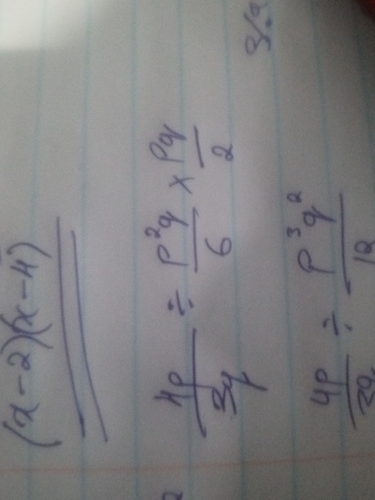 (x-2)(x-4)
4p/3q ÷ p²q/6 × pq/2
4p/3q ÷ p³q²/12